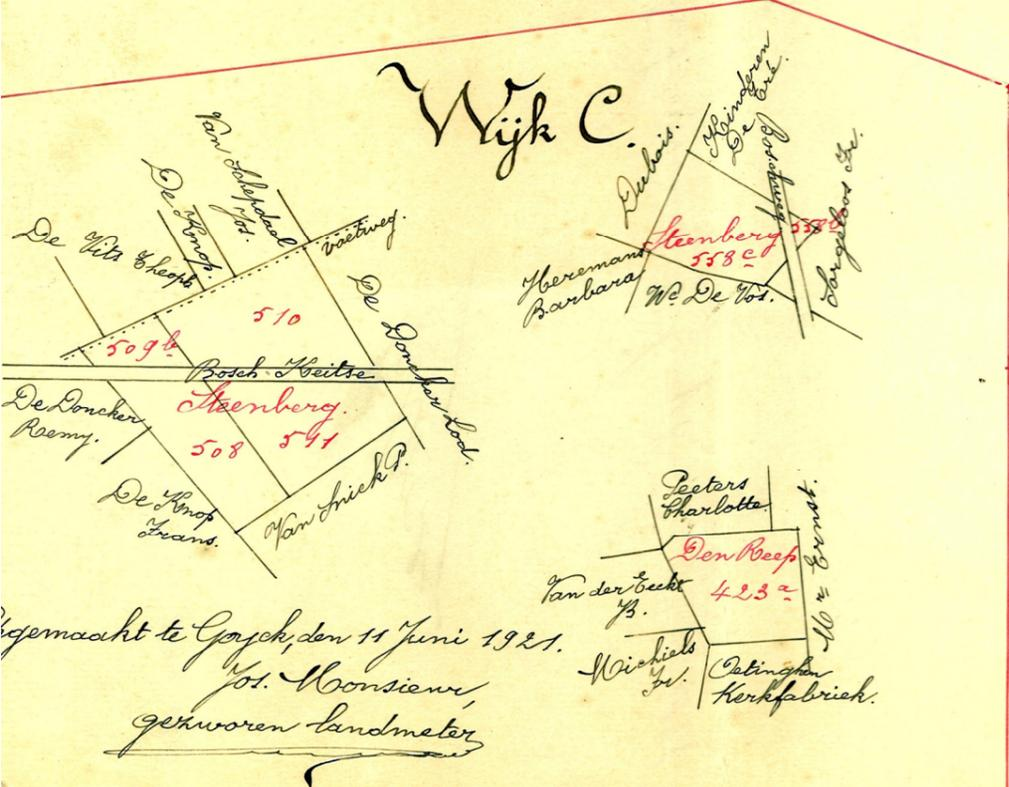 Wijk C.
Van Schepdael
Jos.
De Knop.
De Vits Theoph
voetweg.
De Doncker Lod.
510
509b
Bosch Heitse
Steenberg.
508
511
De Doncker
Remy.
De Knop
Frans.
Van Snick P.
Dubois.
Kinderen
De Erb.
Steenberg
558c
558b
Sergeloos Fr.
Heremans
Barbara
We De Vos.
Peeters
Charlotte
Den Reep
423a
Mr Ernst.
Van der Eeckt
B.
Michiels
Fr.
Oetinghen
Kerkfabriek.
gemaakt te Goyck, den 11 Juni 1921.
Jos. Monsieur,
gezworen landmeter